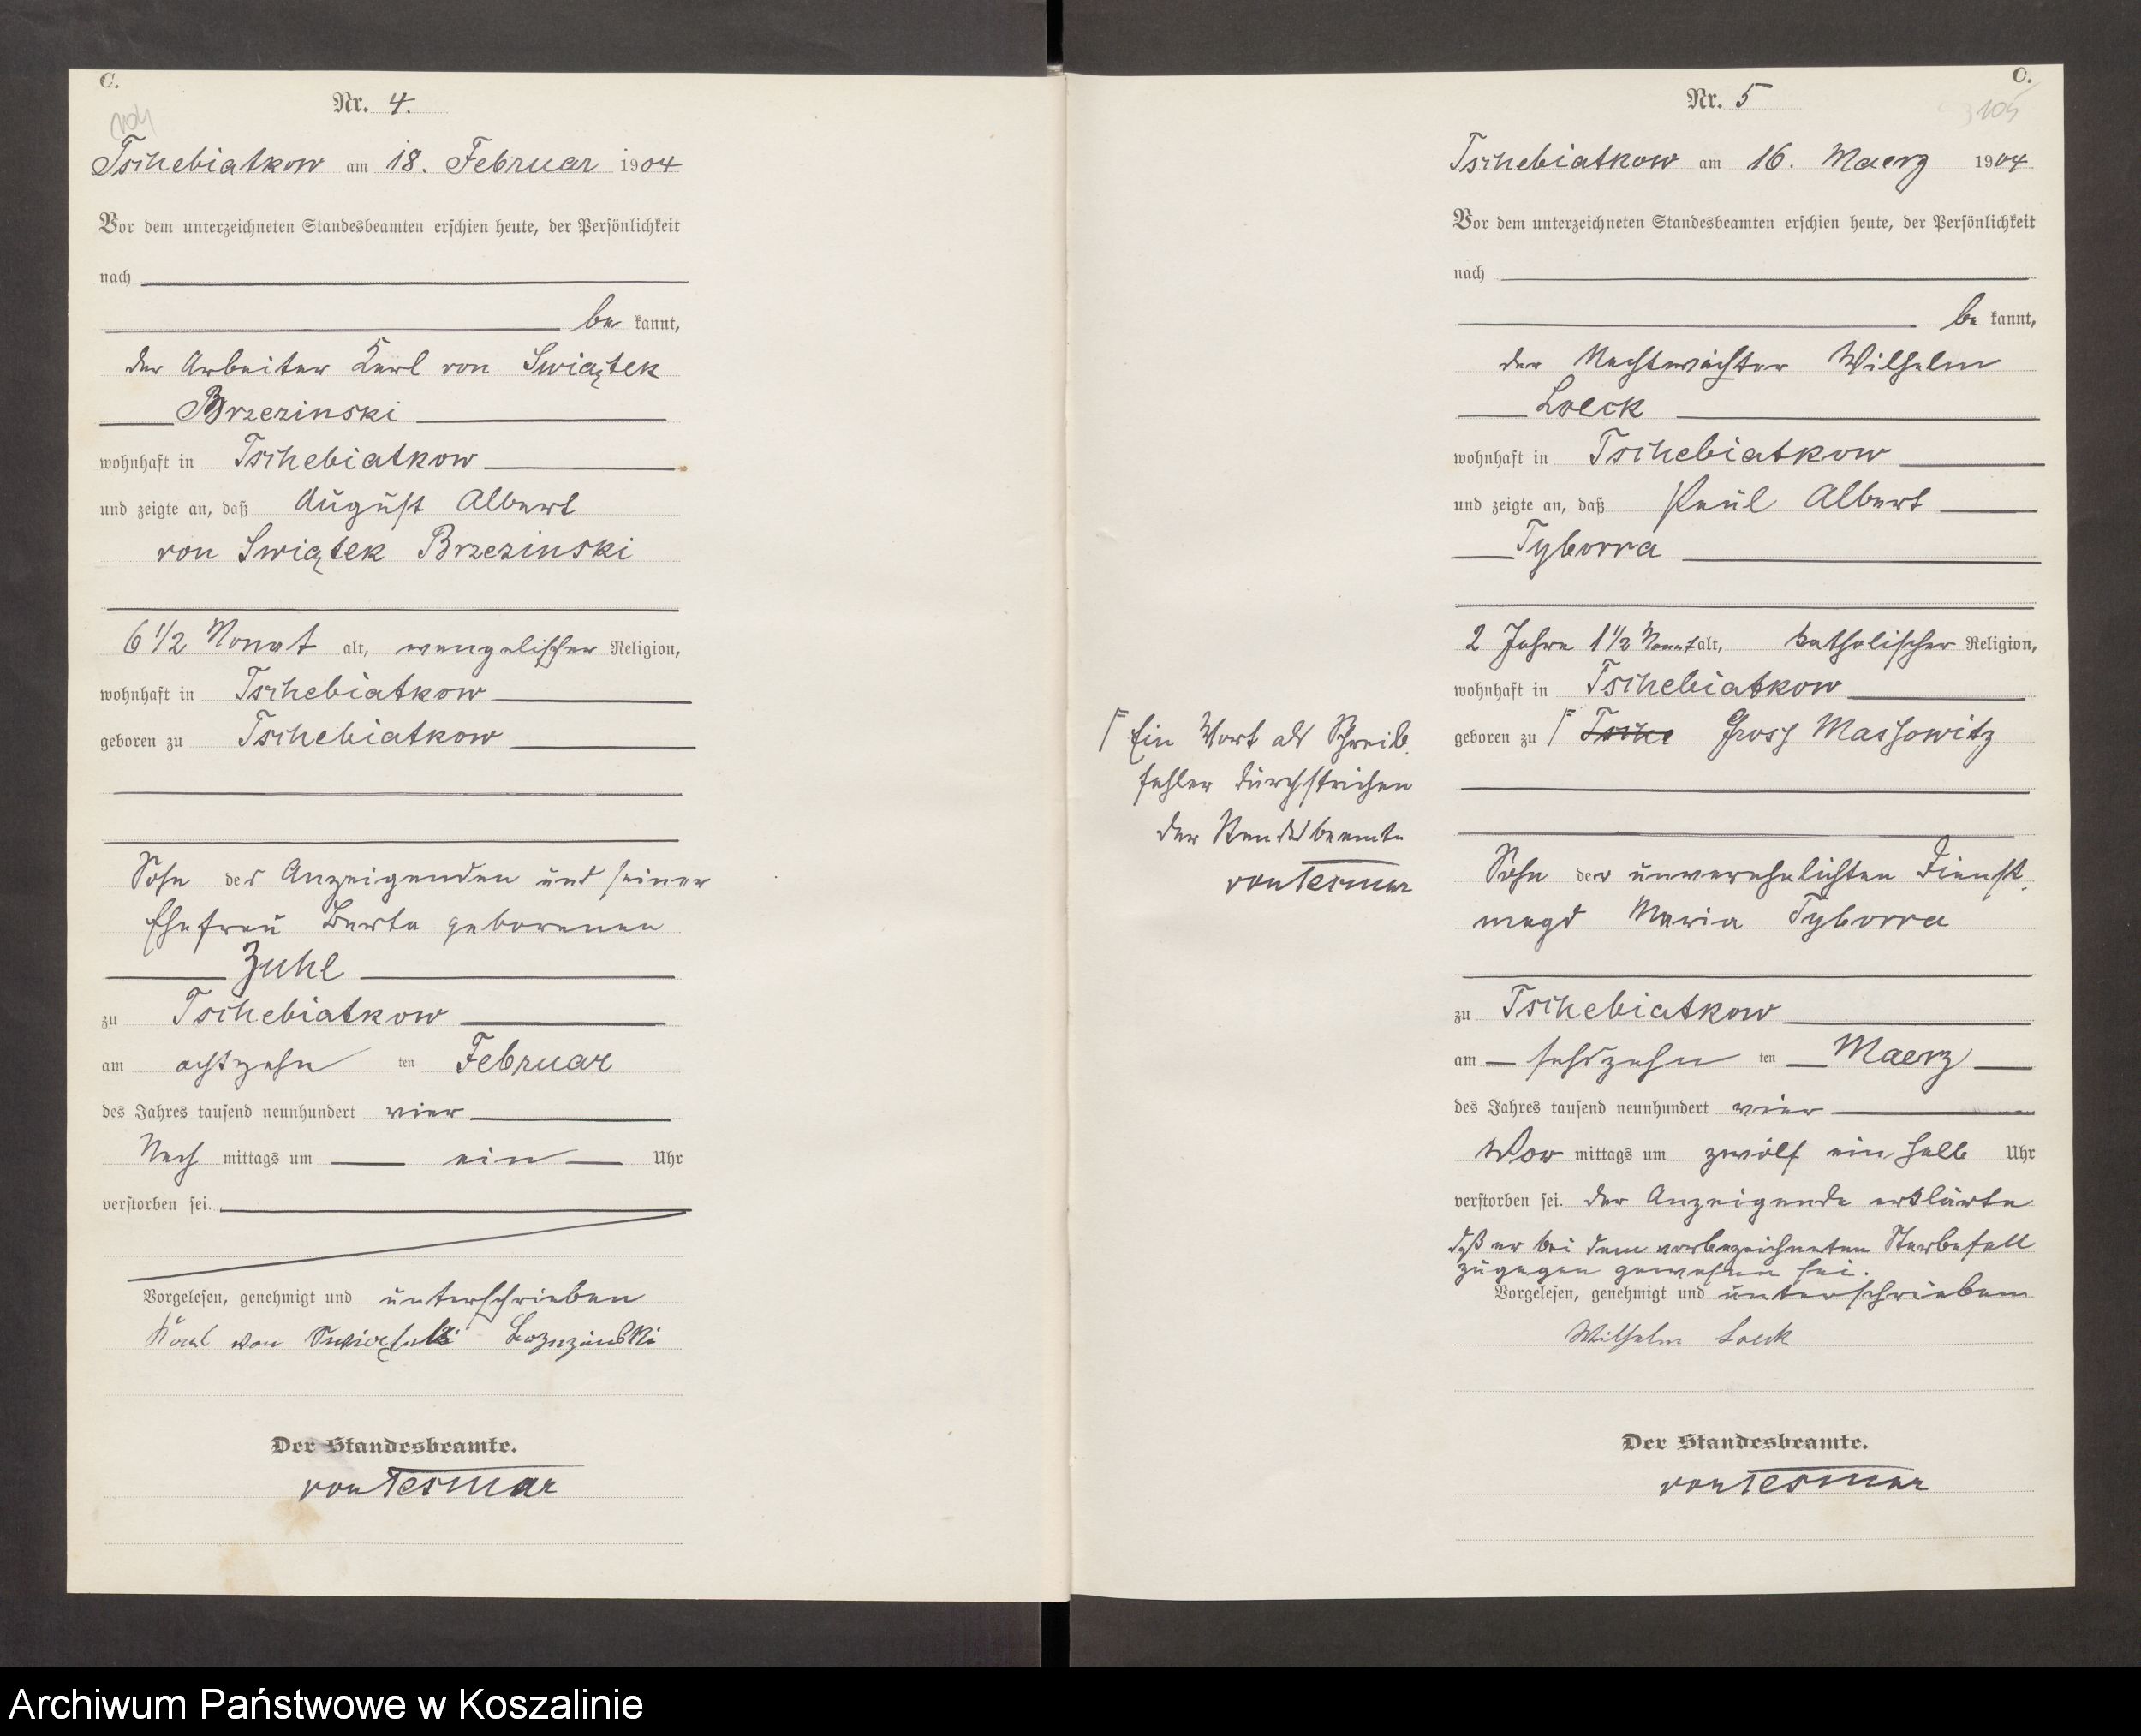 C.
Nr. 4.
104
Tschebiatkow am 18. Februar 1904
Vor dem unterzeichneten Standesbeamten erschien heute, der Persönlichkeit
nach
be kannt,
der Arbeiter Karl von Swiątek
Brzezinski
wohnhaft in Tschebiatkow
und zeigte an, daß August Albert
von Swiątek Brzezinski
6 1/2 Monat alt, evangelischer Religion,
wohnhaft in Tschebiatkow
geboren zu Tschebiatkow
Sohn des Anzeigenden und seiner
Ehefrau Berta geborenen
Zuhl
zu Tschebiatkow
am achtzehn ten Februar
des Jahres tausend neunhundert vier
Nach mittags um ein Uhr
verstorben sei.
Vorgelesen, genehmigt und unterschrieben
Karl von Brzezinski
Der Standesbeamte.
von Tesmar
C.
Nr. 5
105
Tschebiatkow am 16. Maerz 1904
Vor dem unterzeichneten Standesbeamten erschien heute, der Persönlichkeit
nach
be kannt,
der Nachtwächter Wilhelm
Loeck
wohnhaft in Tschebiatkow
und zeigte an, daß Paul Albert
Tyborra
2 Jahre 1 1/2 Monat alt, katholischer Religion,
wohnhaft in Tschebiatkow
geboren zu Tsche Gross Massowitz
Ein Wort als Schreib
fehler durchstrichen
der Standesbeamte
von Tesmar
Sohn der unverehelichten Dienst
magd Maria Tyborra
zu Tschebiatkow
am sechszehn ten Maerz
des Jahres tausend neunhundert vier
Vor mittags um zwölf ein halb Uhr
verstorben sei. Der Anzeigende erklärte
daß er bei dem vorbezeichneten Sterbefall
zugegen gewesen sei.
Vorgelesen, genehmigt und unterschrieben
Wilhelm Loeck
Der Standesbeamte.
von Tesmar
Archiwum Państwowe w Koszalinie